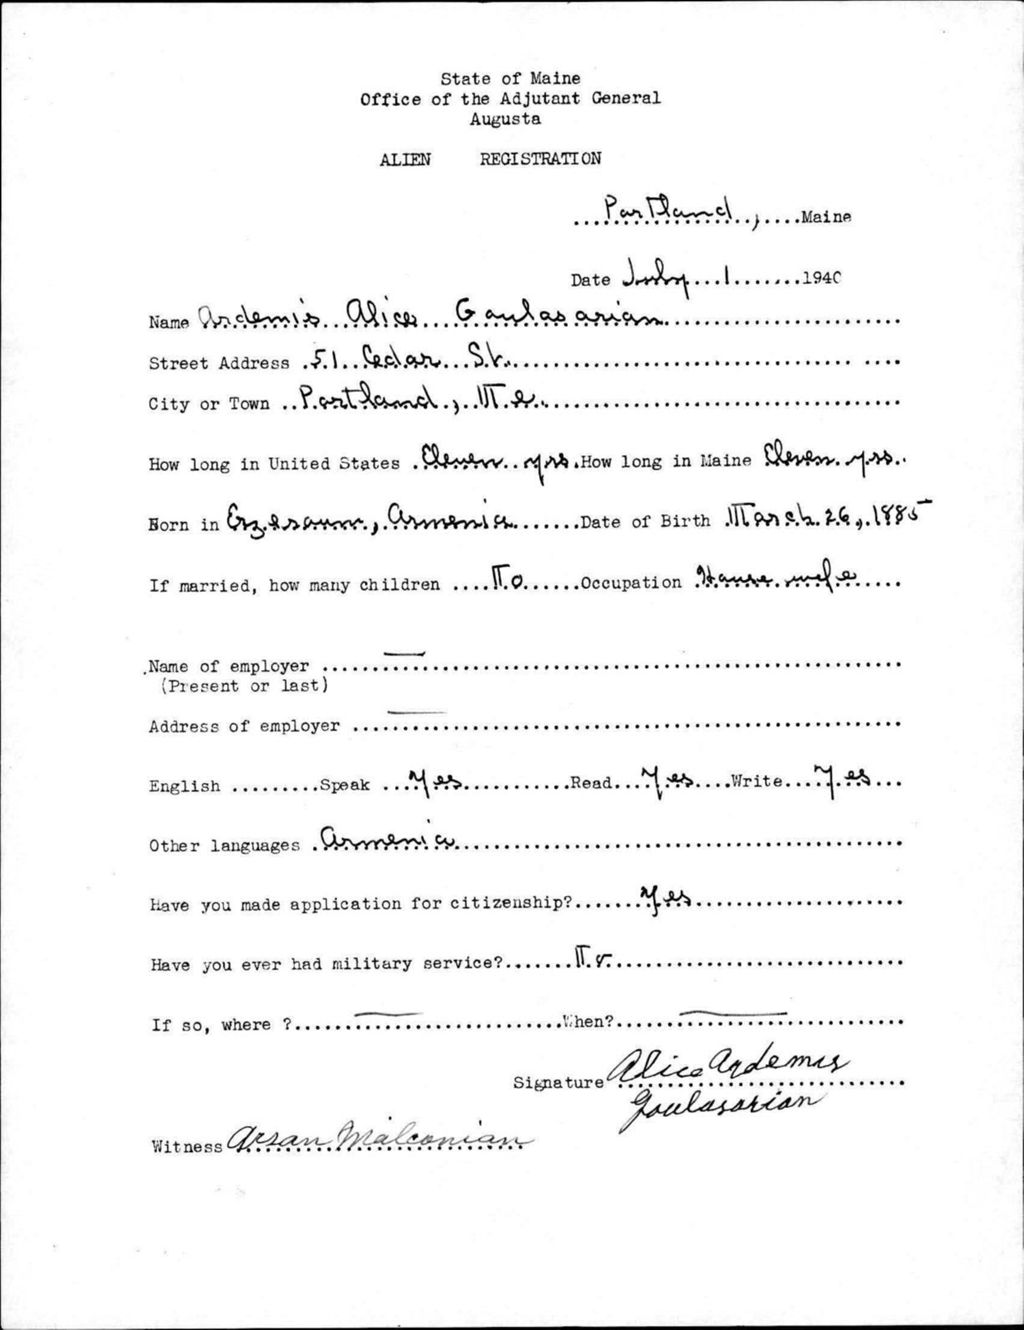 State of Maine
Office of the Adjutant General
Augusta
ALIEN REGISTRATION
...Portland..,....Maine
Date July...1.......1940
Name Ardemis...Alice...Goulasarian...........................
Street Address .51..Cedar...St...................................... ....
City or Town ..Portland.,.Me.......................................
How long in United States .Eleven..yrs.How long in Maine Eleven.yrs..
Born in Erzeroum.,.Armenia.......Date of Birth .March.26,.1885
If married, how many children ....No......Occupation .House.wife.....
Name of employer ..........................................................
(Present or last)
Address of employer .......................................................
English .........Speak ...Yes...........Read....Yes....Write...Yes...
Other languages .Armenia.............................................
Have you made application for citizenship?.......Yes.....................
Have you ever had military service?.......No..............................
If so, where ?...........................When?.............................
Signature Alice Ardemis
Goulasarian
Witness Arsan Malconian